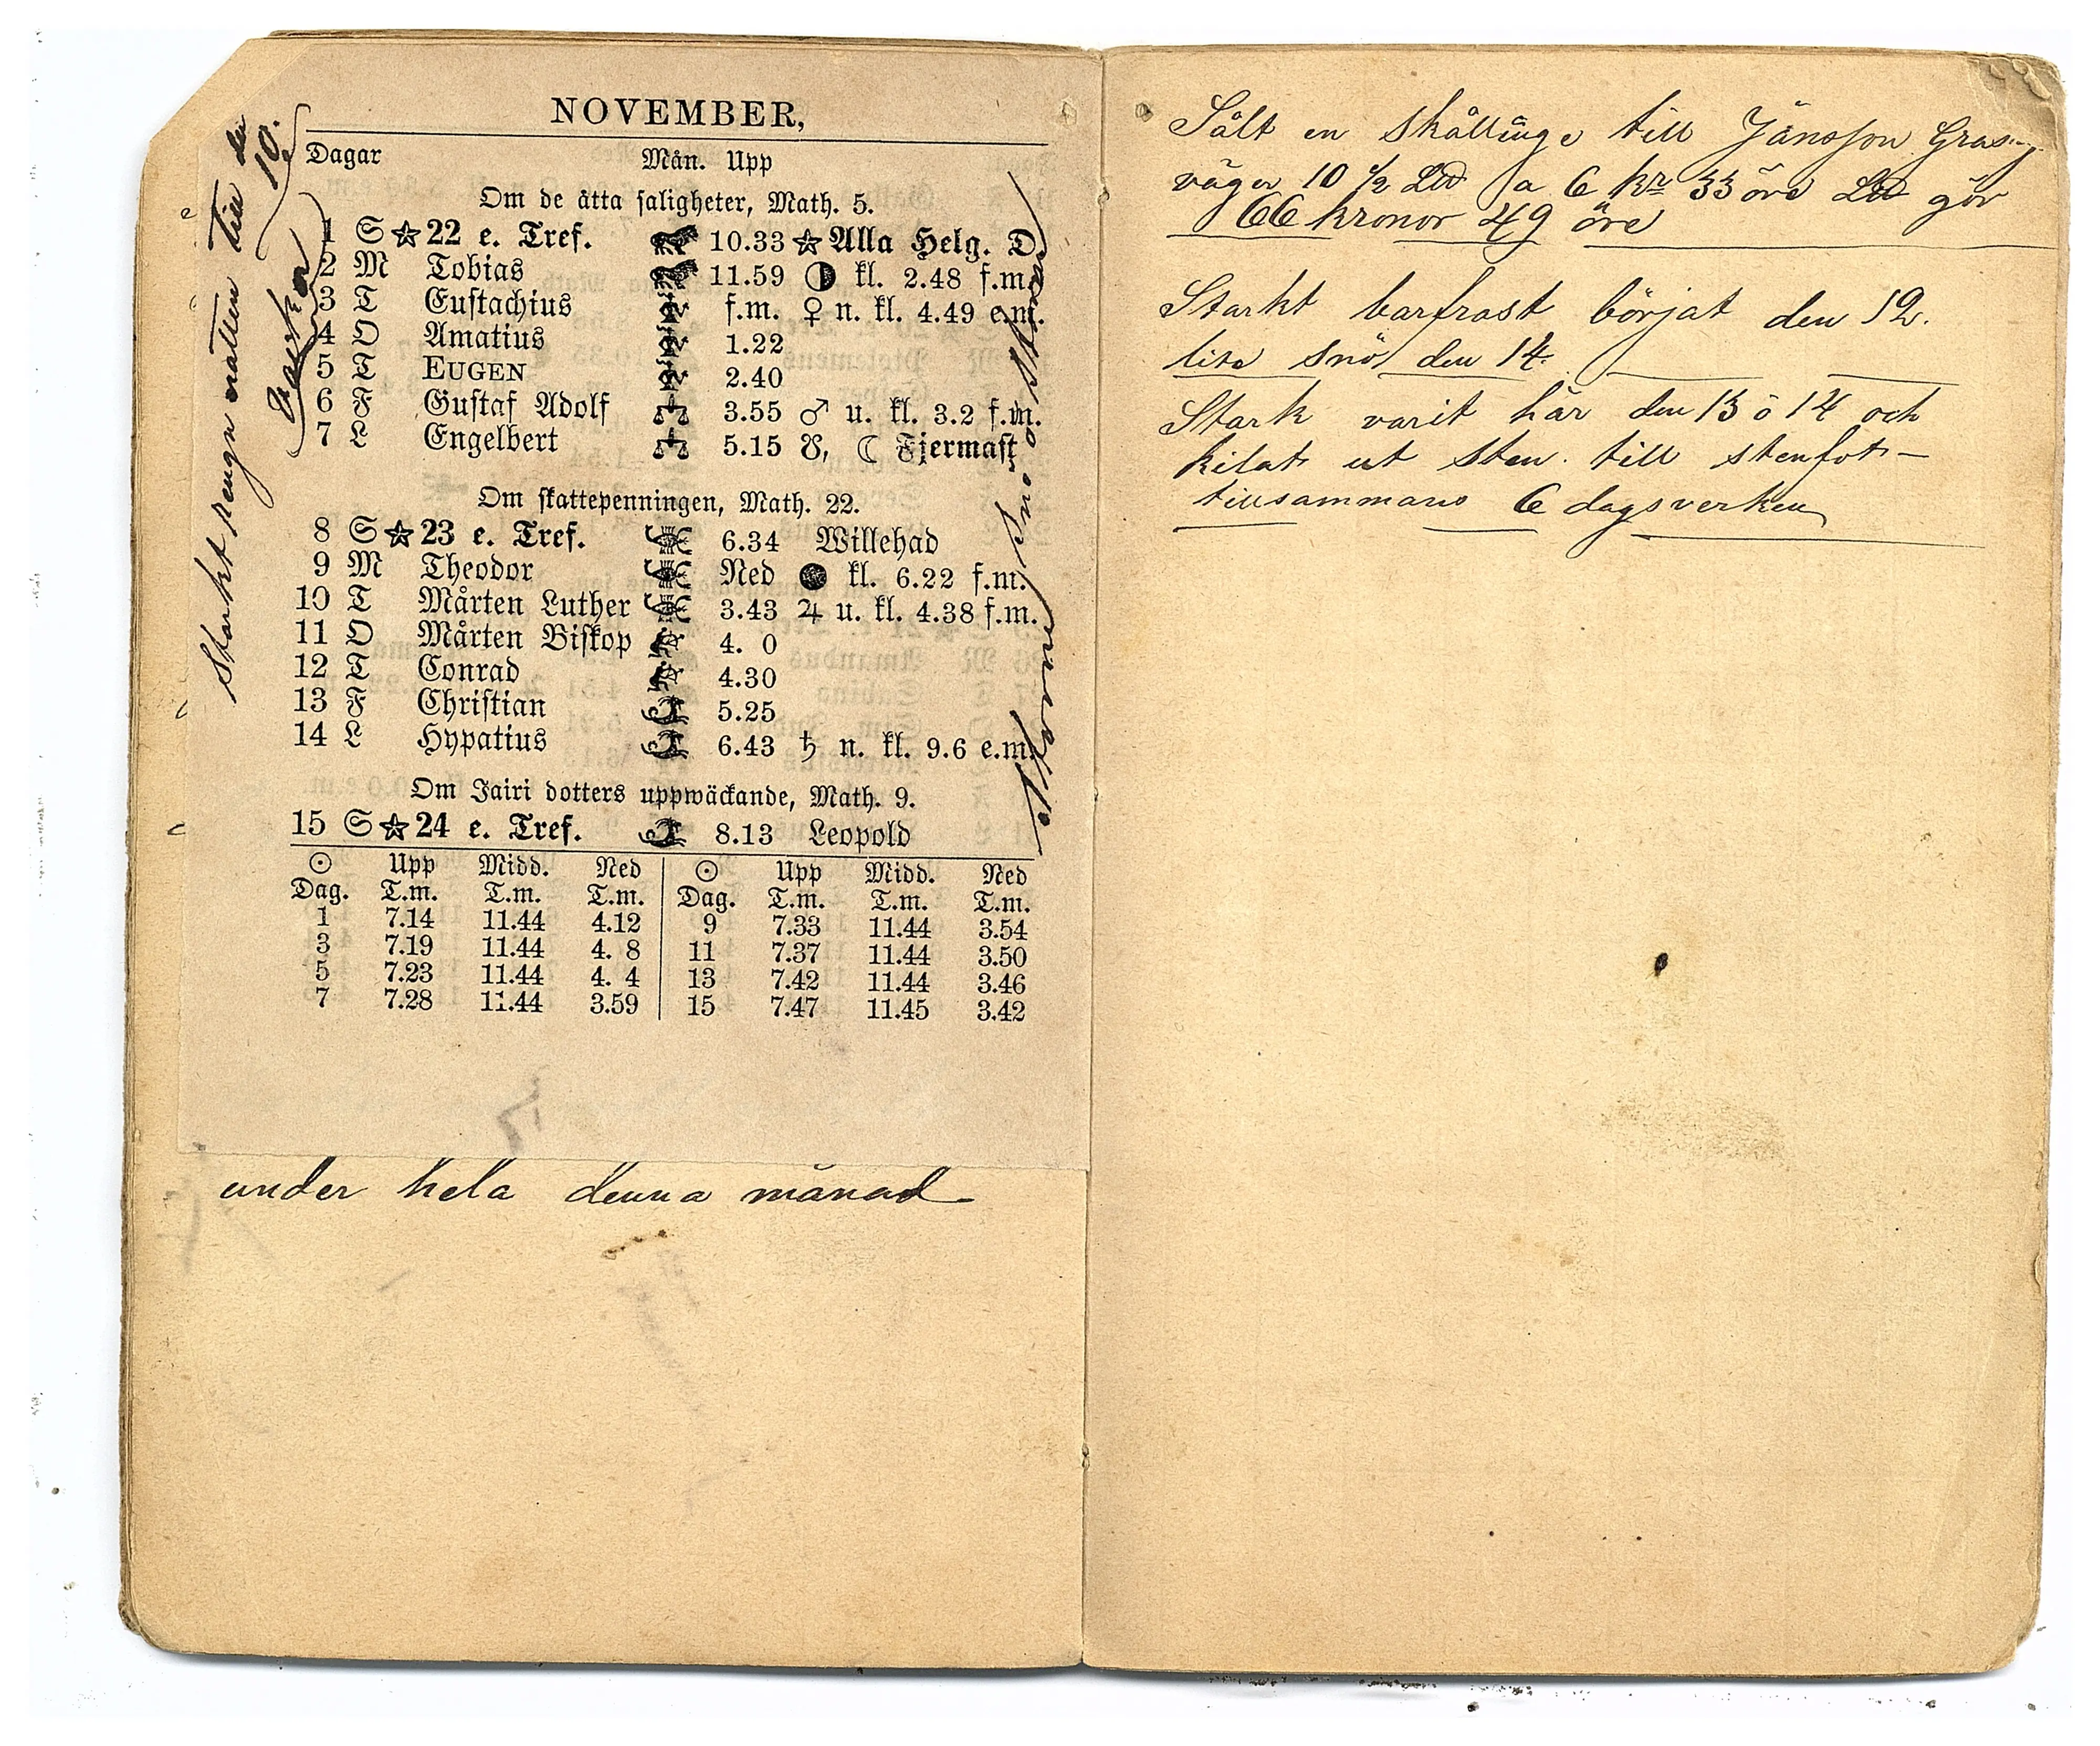 NOVEMBER,
Dagar Mån. Upp
Om de åtta saligheter, Math. 5.
1 S ☆ 22 e. Tref. 10.33 ☆ Alla Helg. D
2 M Tobias 11.59 ◑ kl. 2.48 f.m.
3 T Eustachius f.m. ♀ n. kl. 4.49 e.m.
4 O Amatius 1.22
5 T EUGEN 2.40
6 F Gustaf Adolf 3.55 ♂ u. kl. 3.2 f.m.
7 L Engelbert 5.15 ☋, ☾ Fjermast
Om skattepenningen, Math. 22.
8 S ☆ 23 e. Tref. 6.34 Willehad
9 M Theodor Ned ● kl. 6.22 f.m.
10 T Mårten Luther 3.43 ♃ u. kl. 4.38 f.m.
11 O Mårten Biskop 4. 0
12 T Conrad 4.30
13 F Christian 5.25
14 L Hypatius 6.43 ♄ n. kl. 9.6 e.m.
Om Jairi dotters uppwäckande, Math. 9.
15 S ☆ 24 e. Tref. 8.13 Leopold
☉ Upp Midd. Ned ☉ Upp Midd. Ned
Dag. T.m. T.m. T.m. Dag. T.m. T.m. T.m.
1 7.14 11.44 4.12 9 7.33 11.44 3.54
3 7.19 11.44 4. 8 11 7.37 11.44 3.50
5 7.23 11.44 4. 4 13 7.42 11.44 3.46
7 7.28 11.44 3.59 15 7.47 11.45 3.42
Starkt rengn natten till den 10.
under hela denna månad
Sålt en skållinge till Jänsson
väger 10 1/2 Lđ a 6 kr 33 öre Lđ gör
66 kronor 49 öre
Starkt barfrost börjat den 12.
lite snö den 14.
Stark varit här den 13 o 14 och
kilat ut sten till stenfot
tillsammans 6 dagsverken